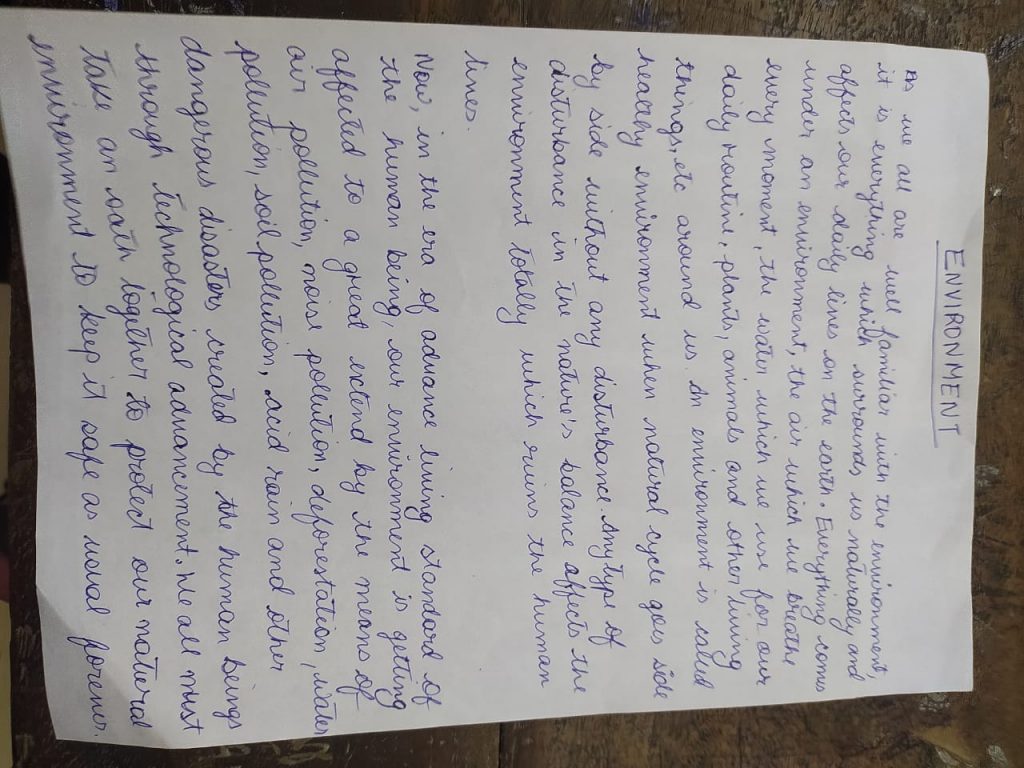 ENVIRONMENT
As we all are well familiar with the environment,
it is everything which surrounds us naturally and
affects our daily lives on the earth. Everything coms
under an environment, the air which we breathe
every moment, the water which we use for our
daily routine, plants, animals and other living
things, etc around us. An environment is called
healthy environment when natural cycle goes side
by side without any disturbance. Any type of
disturbance in the nature's balance affects the
environment totally which ruins the human
lives.
Now, in the era of advance living standard of
the human being, our environment is getting
affected to a great extend by the means of
air pollution, noise pollution, deforestation, water
pollution, soil pollution, acid rain and other
dangerous disasters created by the human beings
through technological advancement. We all must
take an oath together to protect our natural
environment to keep it safe as usual forever.